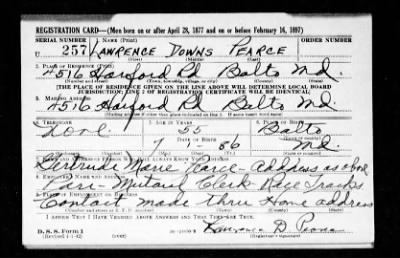 REGISTRATION CARD—(Men born on or after April 28, 1877 and on or before February 16, 1897)
SERIAL NUMBER 1. NAME (Print) ORDER NUMBER
U 257 LAWRENCE DOWNS PEARCE
(First) (Middle) (Last)
2. PLACE OF RESIDENCE (Print)
4516 Harford Rd Balto Md.
(Number and street) (Town, township, village, or city) (County) (State)
[THE PLACE OF RESIDENCE GIVEN ON THE LINE ABOVE WILL DETERMINE LOCAL BOARD
JURISDICTION; LINE 2 OF REGISTRATION CERTIFICATE WILL BE IDENTICAL]
3. MAILING ADDRESS
4516 Harford Rd Balto Md.
[Mailing address if other than place indicated on line 2. If same insert word same]
4. TELEPHONE 5. AGE IN YEARS 6. PLACE OF BIRTH
55 Balto
DATE OF BIRTH
7 1 - 86 Md.
(Mo.) (Day) (Yr.)
7. NAME AND ADDRESS OF PERSON WHO WILL ALWAYS KNOW YOUR ADDRESS
Gertrude Marie Pearce - Address as above
8. EMPLOYER'S NAME AND ADDRESS
Pari-Mutuel Clerk Race Tracks
9. PLACE OF EMPLOYMENT OR BUSINESS
Contact made thru Home address
(Number and street or R. F. D. number) (Town) (County) (State)
I AFFIRM THAT I HAVE VERIFIED ABOVE ANSWERS AND THAT THEY ARE TRUE.
D. S. S. Form 1
(Revised 4-1-42) (over) Lawrence D Pearce
(Registrant's signature)